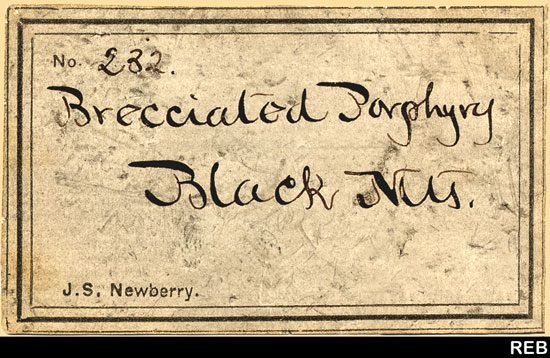 No. 232.
Brecciated Porphyry
Black Mts.
J.S. Newberry.
REB